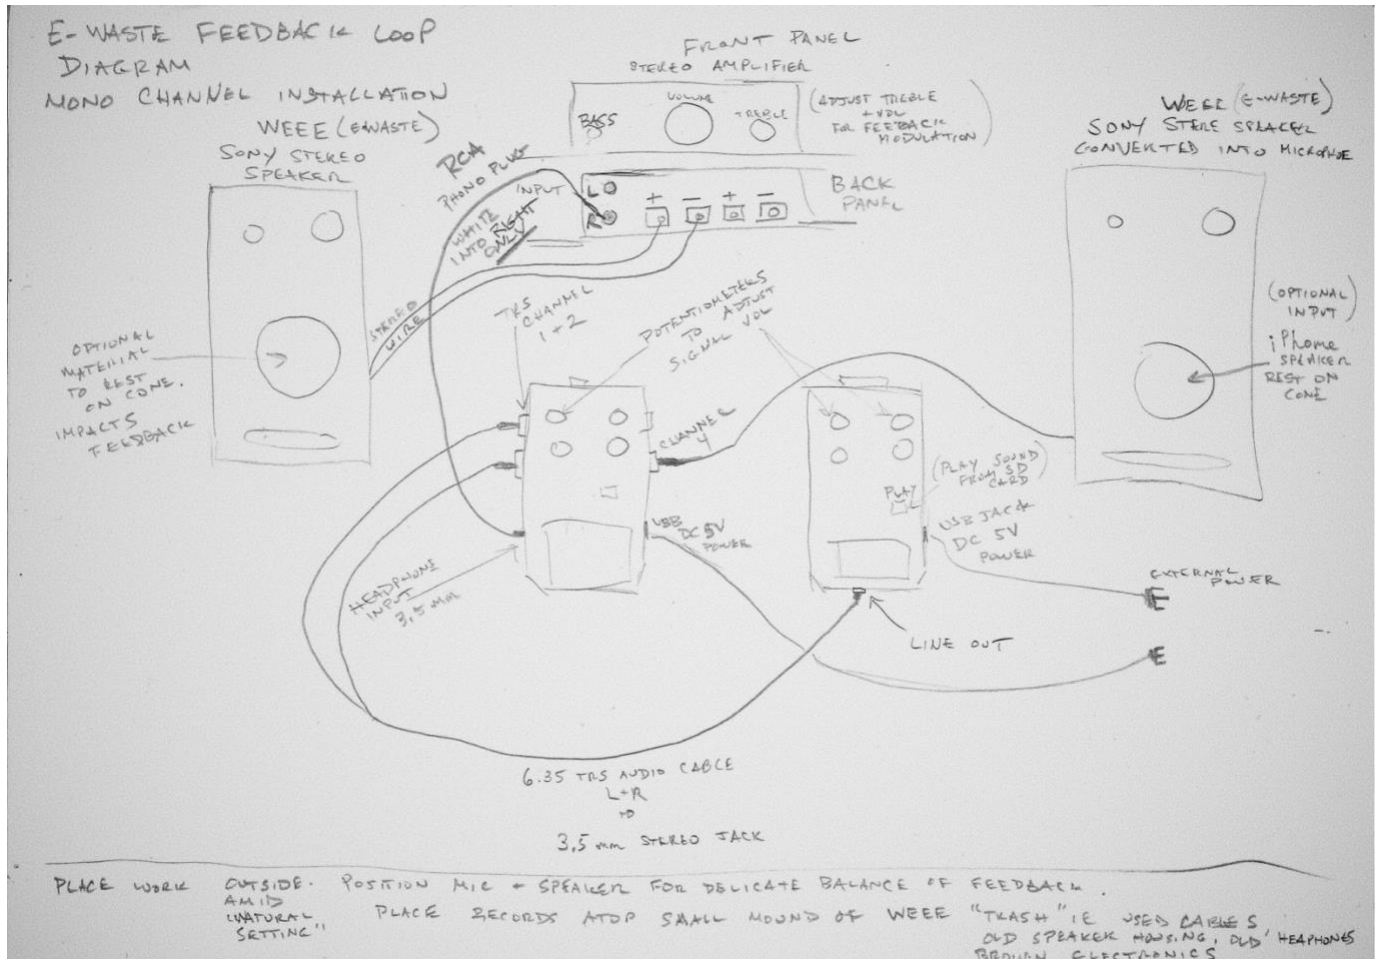 E-WASTE FEEDBACK LOOP
DIAGRAM
MONO CHANNEL INSTALLATION
WEEE (E-WASTE)
SONY STEREO
SPEAKER
FRONT PANEL
STEREO AMPLIFIER
BASS
VOLUME
TREBLE
(ADJUST TREBLE
+ VOL
FOR FEEDBACK
MODULATION)
WEEE (E-WASTE)
SONY STERE SPEAKER
CONVERTED INTO MICROPHOE
RCA
PHONO PLUG
INPUT
WHITE
INTO RIGHT
ONLY
L
R
+ - + -
BACK
PANEL
STEREO
WIRE
TRS
CHANNEL
1 + 2
POTENTIOMETERS
TO ADJUST
SIGNAL VOL
OPTIONAL
MATERIAL
TO REST
ON CONE.
IMPACTS
FEEDBACK
(OPTIONAL)
INPUT
iPhone
SPEAKER
REST ON
CONE
CHANNEL
4
(PLAY SOUND
FROM SD
CARD)
PLAY
USB
DC 5V
POWER
USB JACK
DC 5V
POWER
HEADPHONE
INPUT
3,5 mm
EXTERNAL
POWER
LINE OUT
6.35 TRS AUDIO CABLE
L+R
TO
3,5 mm STEREO JACK
PLACE WORK OUTSIDE. POSITION MIC + SPEAKER FOR DELICATE BALANCE OF FEEDBACK.
AMID
"NATURAL
SETTING"
PLACE RECORDS ATOP SMALL MOUND OF WEEE "TRASH" IE USED CABLES
OLD SPEAKER HOUSING, OLD HEAPHONES
BROWN ELECTRONICS